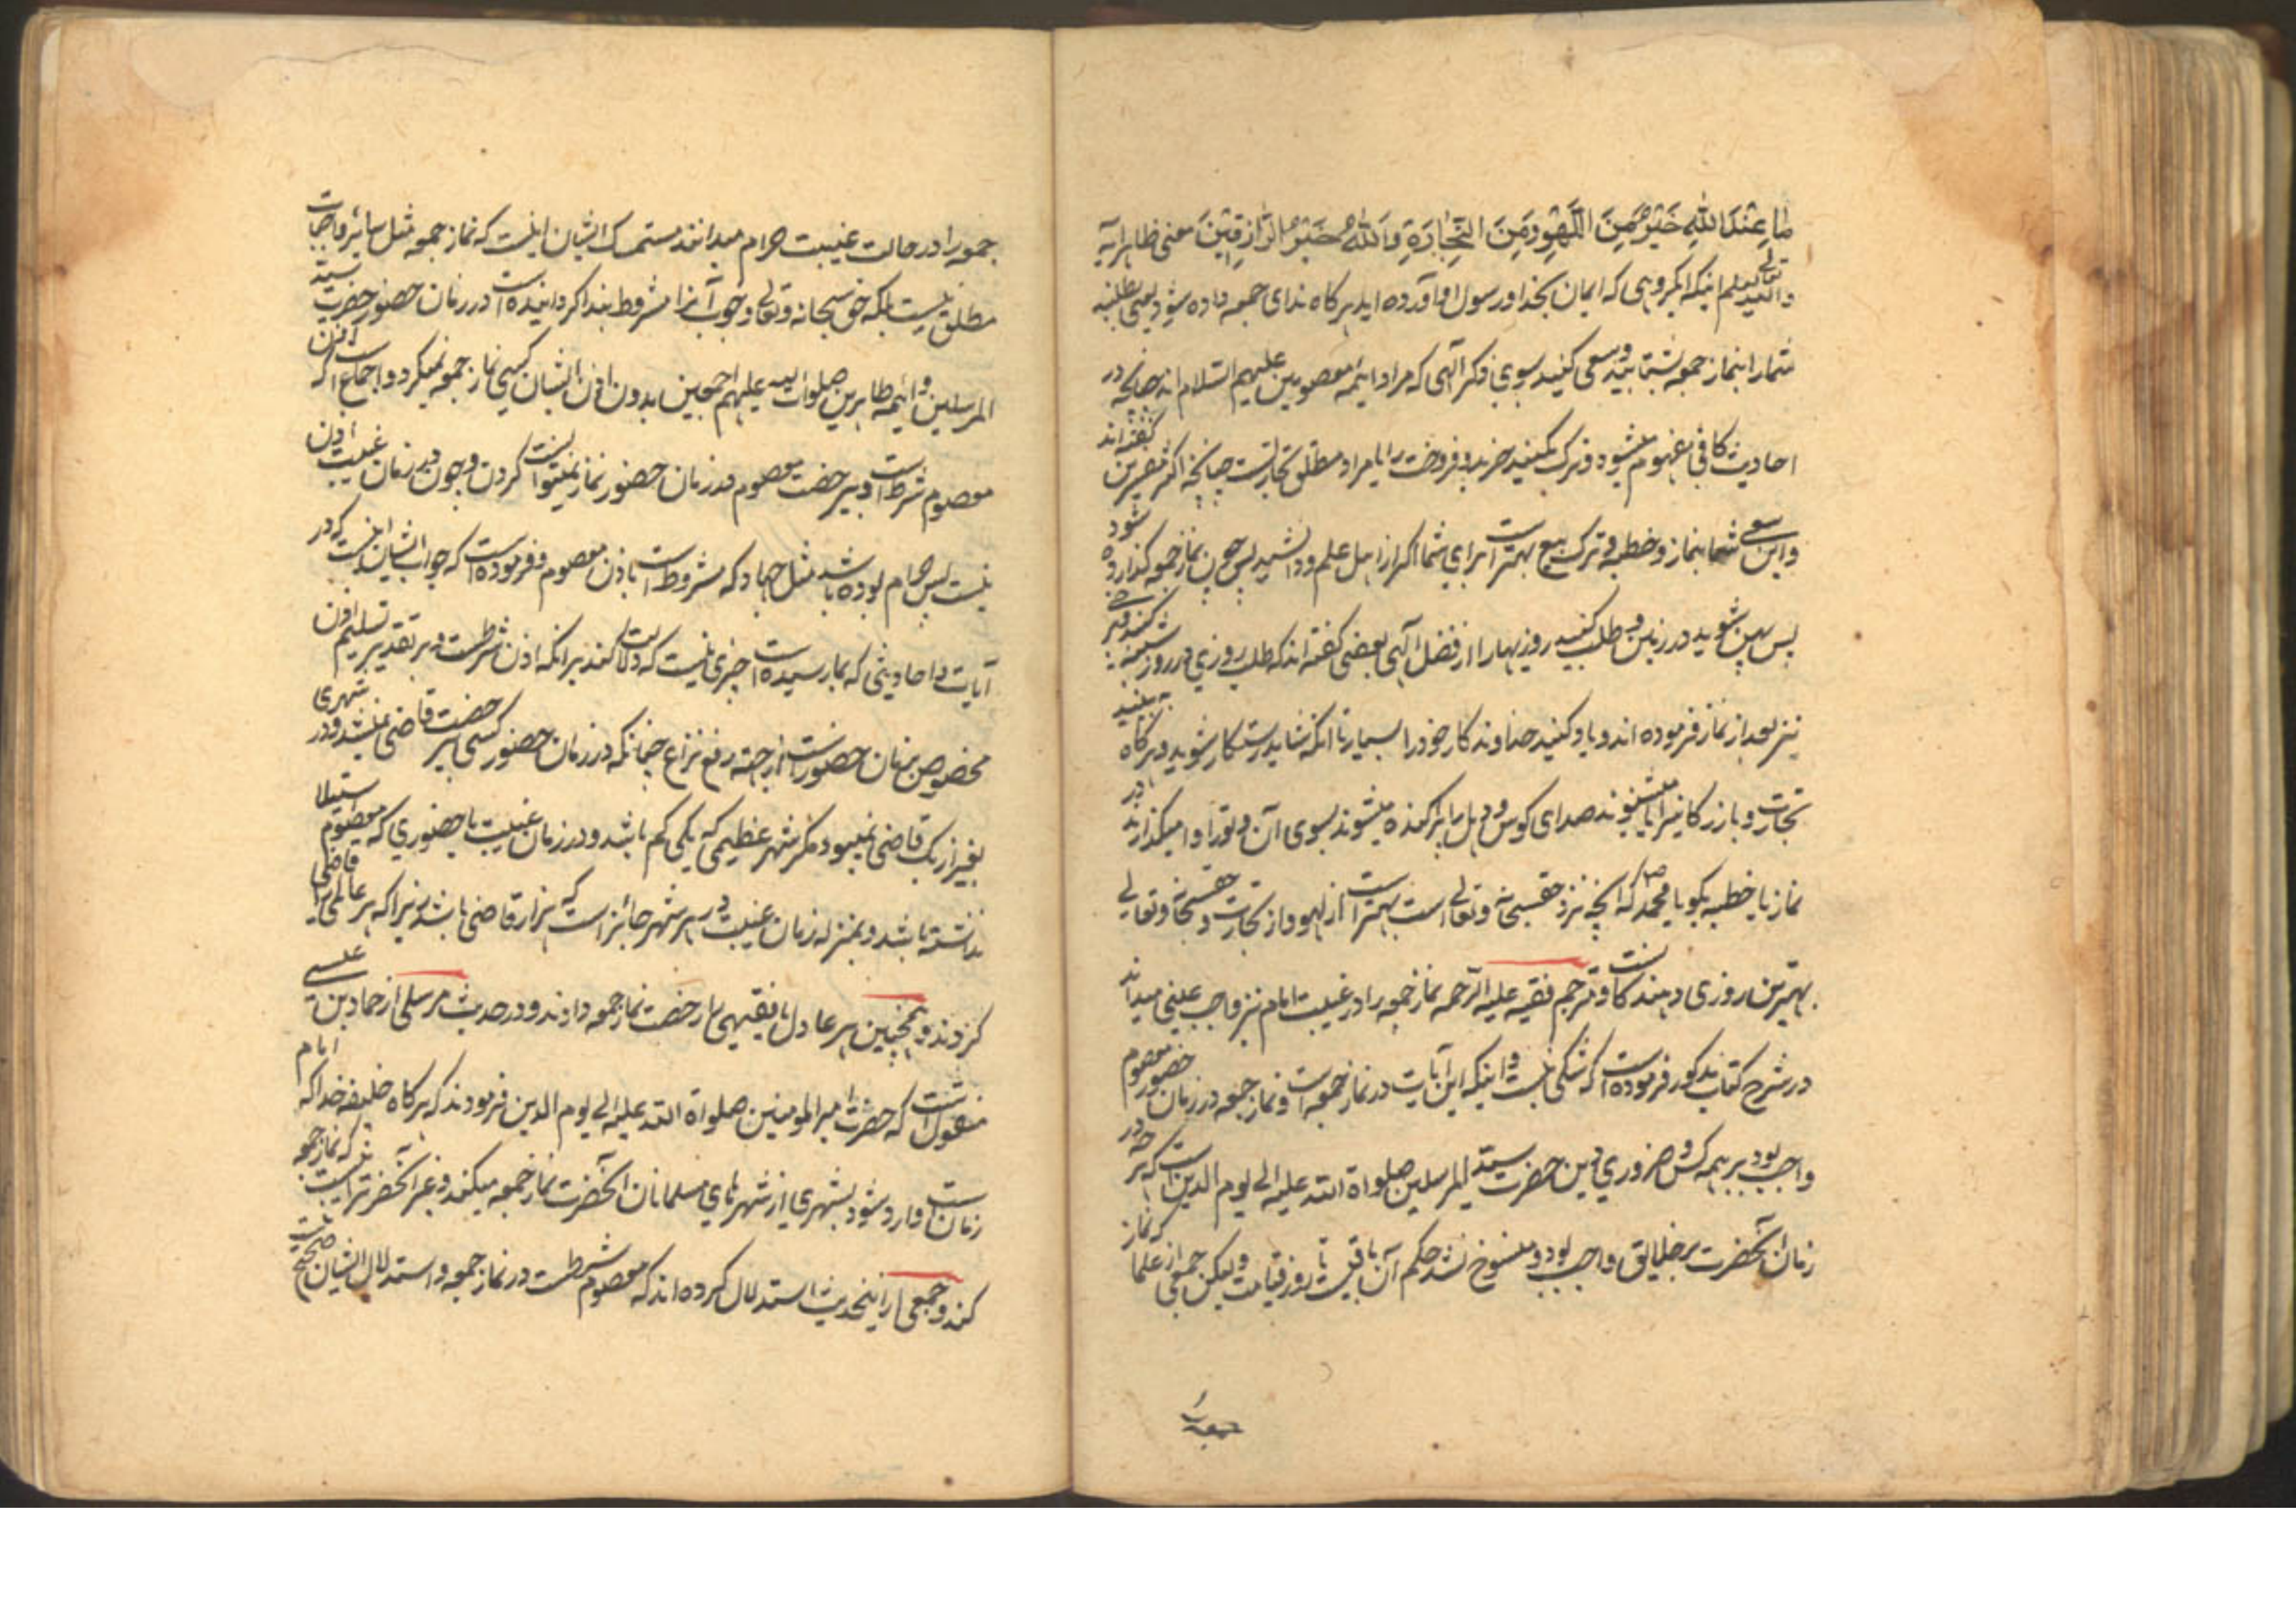 ما عِنْدَ اللهِ خَيْرٌ مِنَ اللَّهْوِ وَمِنَ التِّجارَةِ وَاللهُ خَيْرُ الرّازِقِينَ معنی ظاهر آیه
والله تعالی یعلم اینکه ای گروهی که ایمان بخدا و رسول او آورده اید هرکاه ندای جمعه داده شود یعنی بطلبند
شمارا بنماز جمعه بشتابید و سعی کنید بسوی ذکر الهی که مراد ائمه معصومین علیهم السلام اند چنانچه در
احادیث کافی مفهوم میشود و ترک کنید خرید و فروخت را یا مراد مطلق تجارتست چنانچه اکثر مفسرین گفته اند
و این سعی شما بنماز و خطبه و ترک بیع بهتر است برای شما اکر از اهل علم و دانشید پس چون نماز جمعه گذارده شود
پس پهن شوید در زمین و طلب کنید روزیها را از فضل الهی بعضی گفته اند که طلب روزی در روز شنبه کنند و
نیز بعد از نماز فرموده اند و یاد کنید خداوند کار خود را بسیار تا آنکه شاید رستکار شوید و هرکاه به بینند
تجارت و بازرکانی را یا میشنوند صدای کوس و دهل را پراکنده میشوند بسوی آن و تورا وا میکذارند در
نماز یا خطبه بکو یا محمد ص که آنچه نزد حقسبحانه و تعالی است بهتر است از لهو و از تجارت و حقسبحانه و تعالی
بهترین روزی دهند کانست و مترجم فقیه علیه الرحمه نماز جمعه را در غیبت امام نیز واجب عینی میداند
در شرح کتاب مذکور فرموده است که شکی نیست در اینکه این آیات در نماز جمعه است و نماز جمعه در زمان حضور معصوم
واجب بود بر همه کس و ضروری دین حضرت سید المرسلین صلواة الله علیه الی یوم الدین است که هرچه در
زمان آنحضرت بر خلایق واجب بود و منسوخ نشد حکم آن باقیست تا روز قیامت و لیکن جمعی از علما که نماز
جمعه را
جمعه را در حالت غیبت حرام میدانند مستمسک ایشان اینست که نماز جمعه مثل سایر واجبات
مطلق نیست بلکه حق سبحانه و تعالی وجوب آنرا مشروط بندا کردانیده است در زمان حضور حضرت سید
المرسلین و ائمه طاهرین صلوات الله علیهم اجمعین بدون اذن ایشان کسی نماز جمعه نمیکرد و اجماع است که اذن
معصوم شرط است و بی رخصت معصوم در زمان حضور نماز نمیتوانست کردن و چون در زمان غیبت اذن
نیست پس حرام بوده باشد مثل جهاد که مشروط است باذن معصوم و فرموده است که جواب ایشان اینست که در
آیات و احادیثی که بما رسیده است خبری نیست که دلالت کند بر آنکه اذن شرطست و بر تقدیر تسلیم اذن
مخصوص بزمان حضور است از جهة رفع نزاع چنانکه در زمان حضور کسی بی رخصت قاضی نمیشد و در شهری
بغیر از یک قاضی نمیبود مکر شهر عظیمی که یکی کم باشد و در زمان غیبت یا حضوری که معصوم استیلا
نداشته باشد و بمنزله زمان غیبت در هر شهر جائز است که هزار قاضی باشد زیرا که هر عالمی را قاضی
کردند و همچنین هر عادل یا فقیهی را رخصت نماز جمعه دادند و در حدیث مرسلی از حماد بن عیسی
منقول است که حضرت امیرالمومنین صلواة الله علیه الی یوم الدین فرمودند که هرکاه خلیفه خدا که امام
زمان است وارد شود بشهری از شهرهای مسلمانان آنحضرت نماز جمعه میکند و غیر آنحضرترا نیست که نماز جمعه
کند و جمعی از اینحدیث استدلال کرده اند که معصوم شرطست در نماز جمعه و استدلال ایشان صحیح نیست